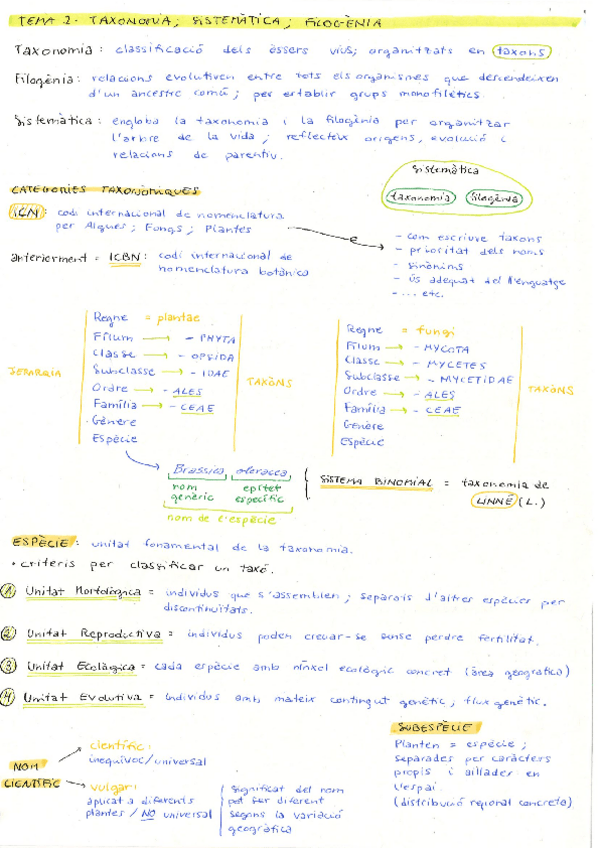 TEMA 2 - TAXONOMIA; SISTEMÀTICA; FILOGÈNIA
Taxonomia: classificació dels éssers vius; organitzats en taxons
Filogènia: relacions evolutives entre tots els organismes que descendeixen
d'un ancestre comú; per establir grups monofilètics.
Sistemàtica: engloba la taxonomia i la filogènia per organitzar
l'arbre de la vida; reflecteix orígens, evolució i
relacions de parentiu.
Sistemàtica
taxonomia filogènia
CATEGORIES TAXONÒMIQUES
ICN: codi internacional de nomenclatura
per Algues; Fungs; Plantes
anteriorment = ICBN: codi internacional de
nomenclatura botànica
- com escriure taxons
- prioritat dels noms
- sinònims
- ús adequat del llenguatge
- ... etc.
JERARQIA
Regne = plantae
Fílum → - PHYTA
Classe → - OPSIDA
Subclasse → - IDAE
Ordre → - ALES
Família → - CEAE
Gènere
Espècie
TAXÒNS
Regne = fungi
Fílum → - MYCOTA
Classe → - MYCETES
Subclasse → - MYCETIDAE
Ordre → - ALES
Família → - CEAE
Gènere
Espècie
TAXÒNS
Brassica oleracea
nom genèric epítet específic
nom de l'espècie
SISTEMA BINOMIAL = taxonomia de
LINNÉ (L.)
ESPÈCIE: unitat fonamental de la taxonomia.
· criteris per classificar un taxó.
1 Unitat Morfològica = individus que s'assemblen; separats d'altres espècies per
discontinuïtats.
2 Unitat Reproductiva = individus poden creuar-se sense perdre fertilitat.
3 Unitat Ecològica = cada espècie amb nínxol ecològic concret (àrea geogràfica)
4 Unitat Evolutiva = individus amb mateix contingut genètic; flux genètic.
NOM
CIENTÍFIC
científic:
inequívoc/universal
vulgar:
aplicat a diferents
plantes / NO universal
significat del nom
pot ser diferent
segons la variació
geogràfica
SUBESPÈCIE
Plantes = espècie;
separades per caràcters
propis i aïllades en
l'espai.
(distribució regional concreta)